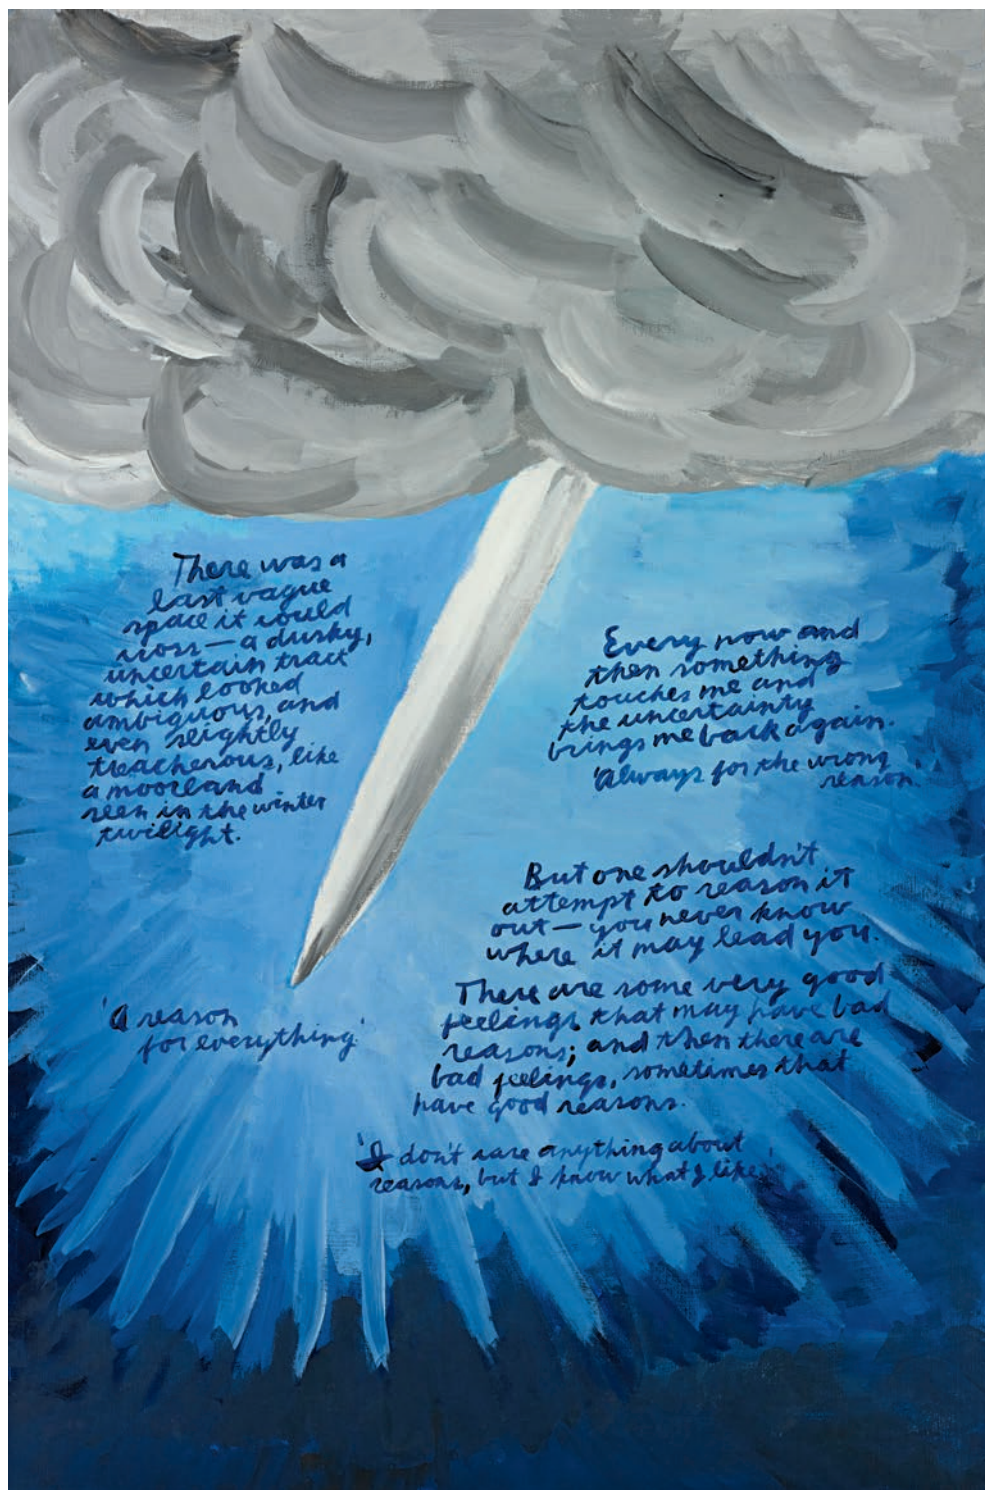 There was a
last vague
space it could
cross — a dusky,
uncertain tract
which looked
ambiguous, and
even slightly
treacherous, like
a moorland
seen in the winter
twilight.
Every now and
then something
touches me and
the uncertainty
brings me back again.
'Always for the wrong
reason.
But one shouldn't
attempt to reason it
out — you never know
where it may lead you.
'A reason
for everything'
There are some very good
feelings that may have bad
reasons; and then there are
bad feelings, sometimes that
have good reasons.
'I don't care anything about
reasons, but I know what I like'